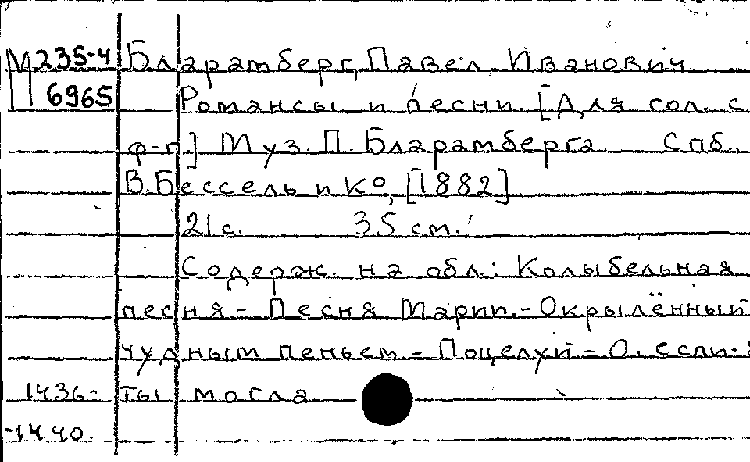 М 235-4 Бларамберг, Павел Иванович
6965 Романсы и песни. [Для гол. с
ф-п.] Муз. П. Бларамберга Спб.,
В. Бессель и Ко, [1882]
21 с. 35 см.
Содерж. на обл.: Колыбельная
песня - Песня Марии. - Окрылённый
чудным пеньем - Поцелуй - О, если-
1436- ты могла
-1440.